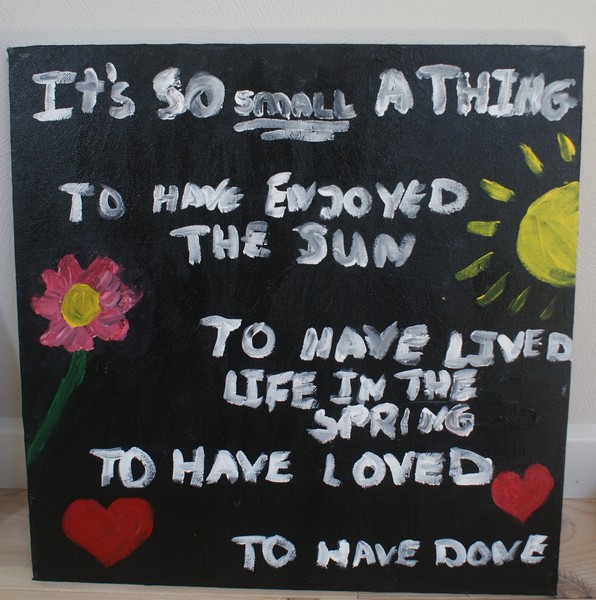 It's SO SMALL A THING
TO HAVE ENJOYED
THE SUN
TO HAVE LIVED
LIFE IN THE
SPRING
TO HAVE LOVED
TO HAVE DONE